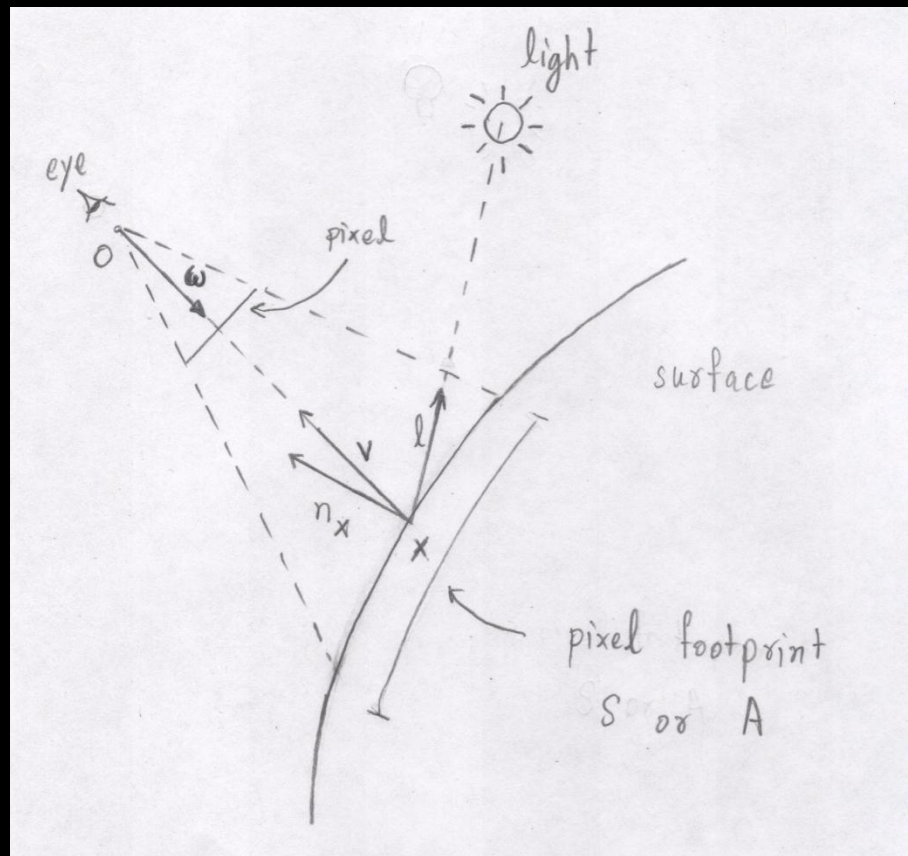 light
eye
pixel
O
ω
surface
l
v
n_x
x
pixel footprint
S or A